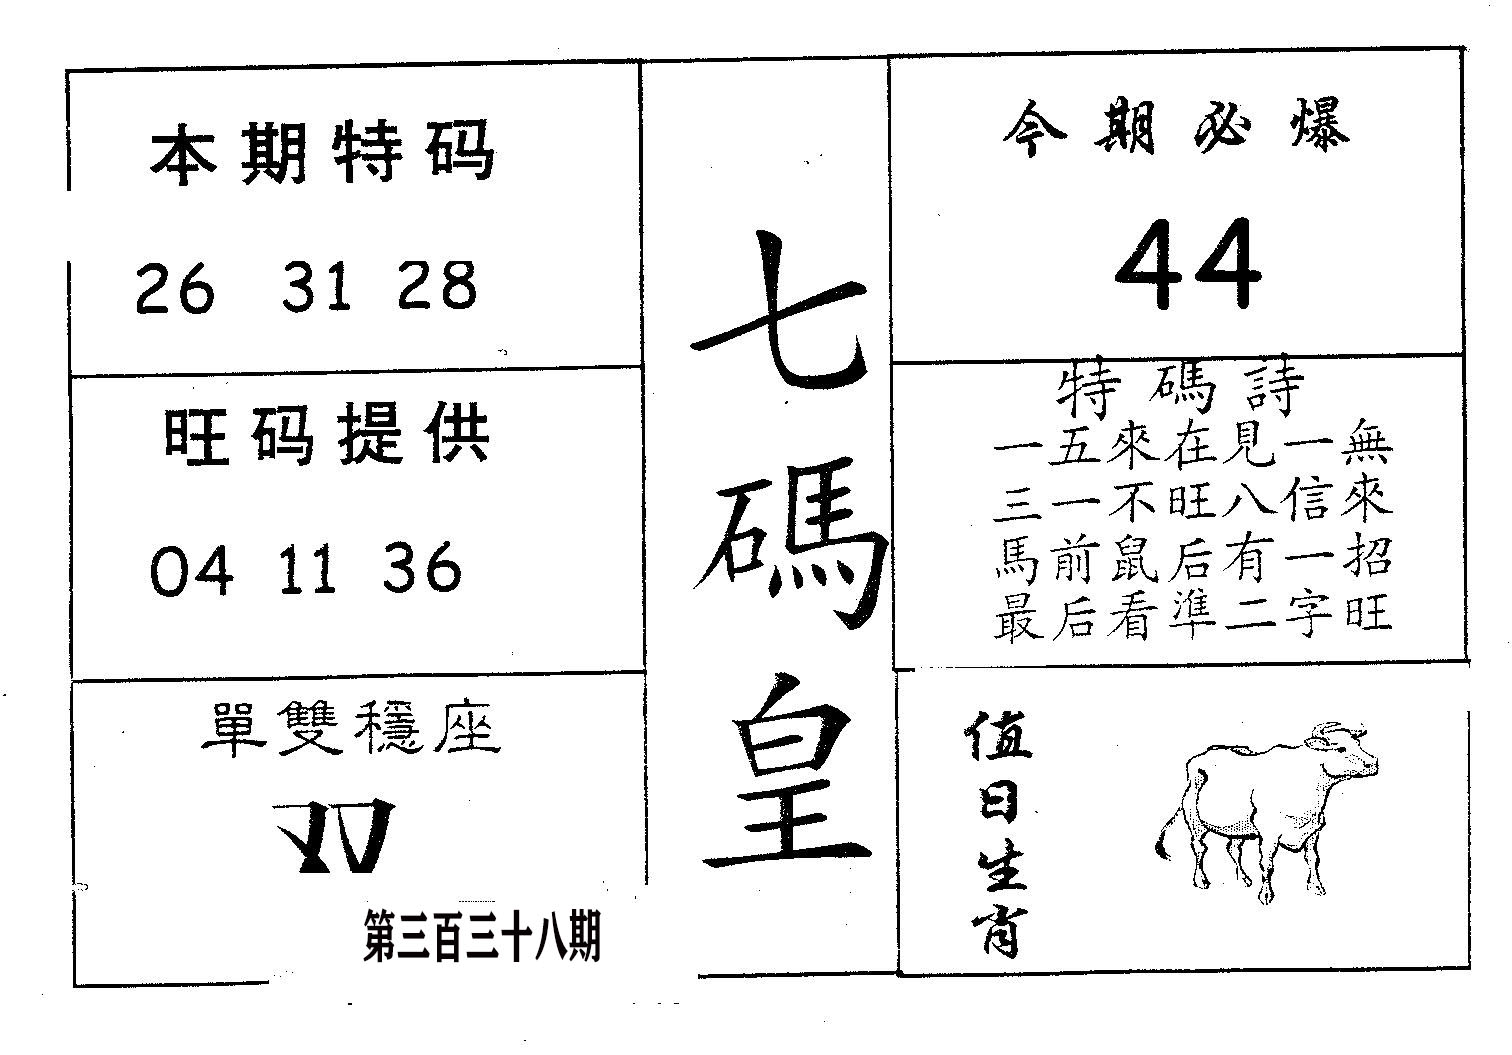 本期特码
26 31 28
旺码提供
04 11 36
單雙穩座
双
第三百三十八期
七碼皇
今期必爆
44
特碼詩
一五來在見一無
三一不旺八信來
馬前鼠后有一招
最后看準二字旺
值日生肖